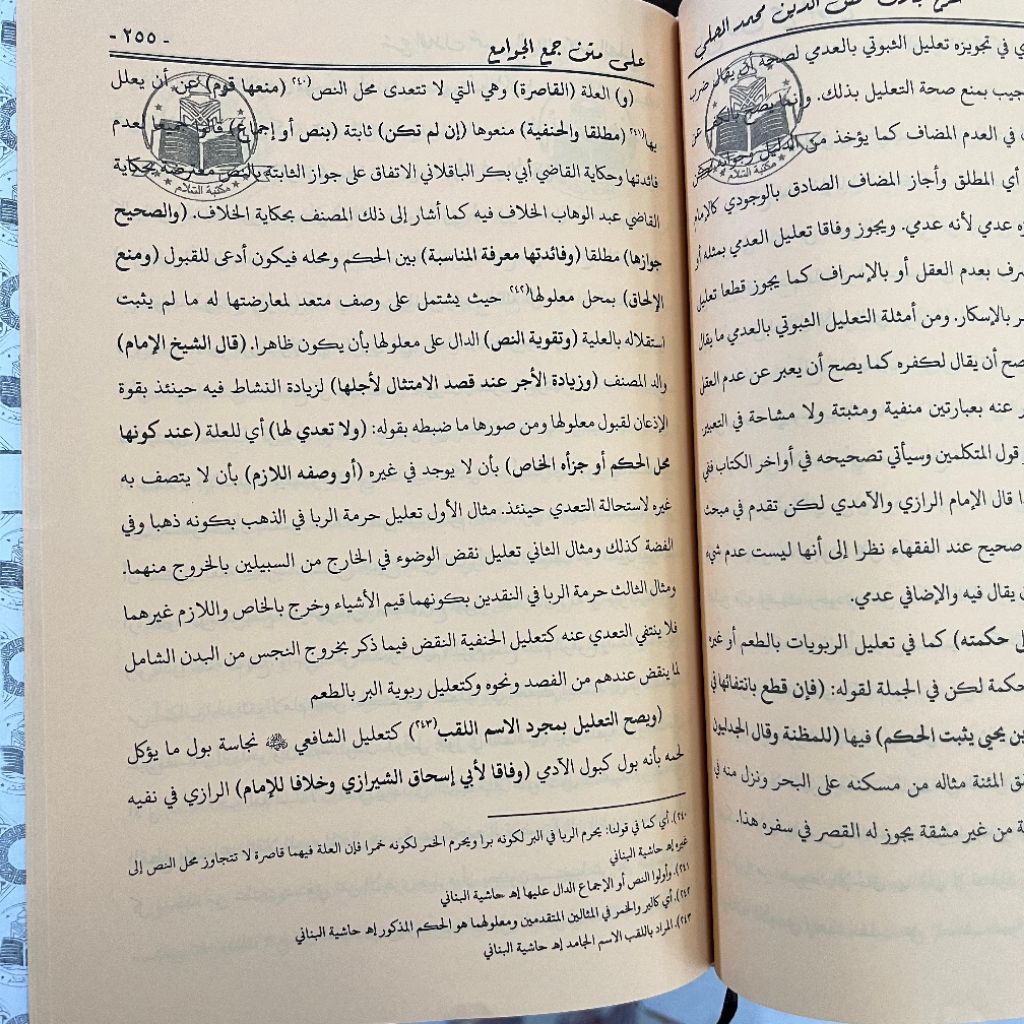 محمد المحلي
ي في تجويزه تعليل الثبوتي بالعدمي لصحة أن يقال ضرب
جيب بمنع صحة التعليل بذلك. وإنما يصح
في العدم المضاف كما يؤخذ من الدليل وجوابه لكن
أي المطلق وأجاز المضاف الصادق بالوجودي كالإمام
ه عدمي لأنه عدمي. ويجوز وفاقا تعليل العدمي بمثله أو
رف بعدم العقل أو بالإسراف كما يجوز قطعا تعليل
ر بالإسكار. ومن أمثلة التعليل الثبوتي بالعدمي ما يقال
صح أن يقال لكفره كما يصح أن يعبر عن عدم العقل
ر عنه بعبارتين منفية ومثبتة ولا مشاحة في التعبير
و قول المتكلمين وسيأتي تصحيحه في أواخر الكتاب ففي
ا قال الإمام الرازي والآمدي لكن تقدم في مبحث
صحيح عند الفقهاء نظرا إلى أنها ليست عدم شيء
ن يقال فيه والإضافي عدمي.
ل حكمته) كما في تعليل الربويات بالطعم أو غيره
حكمة لكن في الجملة لقوله: (فإن قطع بانتفائها في
بن يحيى يثبت الحكم) فيها (للمظنة وقال الجدليون
ق المئنة مثاله من مسكنه على البحر ونزل منه في
ة من غير مشقة يجوز له القصر في سفره هذا.
على متن جمع الجوامع
- ٢٥٥ -
(و) العلة (القاصرة) وهي التي لا تتعدى محل النص(٢٤٠) (منعها قوم) عن أن يعلل
بها(٢٤١) (مطلقا والحنفية) منعوها (إن لم تكن) ثابتة (بنص أو إجماع) قالوا جميعا لعدم
فائدتها وحكاية القاضي أبي بكر الباقلاني الاتفاق على جواز الثابتة بالنص معارضة بحكاية
القاضي عبد الوهاب الخلاف فيه كما أشار إلى ذلك المصنف بحكاية الخلاف. (والصحيح
جوازها) مطلقا (وفائدتها معرفة المناسبة) بين الحكم ومحله فيكون أدعى للقبول (ومنع
الإلحاق) بمحل معلولها(٢٤٢) حيث يشتمل على وصف متعد لمعارضتها له ما لم يثبت
استقلاله بالعلية (وتقوية النص) الدال على معلولها بأن يكون ظاهرا. (قال الشيخ الإمام)
والد المصنف (وزيادة الأجر عند قصد الامتثال لأجلها) لزيادة النشاط فيه حينئذ بقوة
الإذعان لقبول معلولها ومن صورها ما ضبطه بقوله: (ولا تعدي لها) أي للعلة (عند كونها
محل الحكم أو جزأه الخاص) بأن لا يوجد في غيره (أو وصفه اللازم) بأن لا يتصف به
غيره لاستحالة التعدي حينئذ. مثال الأول تعليل حرمة الربا في الذهب بكونه ذهبا وفي
الفضة كذلك ومثال الثاني تعليل نقض الوضوء في الخارج من السبيلين بالخروج منهما.
ومثال الثالث حرمة الربا في النقدين بكونهما قيم الأشياء وخرج بالخاص واللازم غيرهما
فلا ينتفي التعدي عنه كتعليل الحنفية النقض فيما ذكر بخروج النجس من البدن الشامل
لما ينقض عندهم من الفصد ونحوه وكتعليل ربوية البر بالطعم
(ويصح التعليل بمجرد الاسم اللقب(٢٤٣)) كتعليل الشافعي نجاسة بول ما يؤكل
لحمه بأنه بول كبول الآدمي (وفاقا لأبي إسحاق الشيرازي وخلافا للإمام) الرازي في نفيه
٢٤٠). أي كما في قولنا: يحرم الربا في البر لكونه برا ويحرم الخمر لكونه خمرا فإن العلة فيهما قاصرة لا تتجاوز محل النص إلى
غيره إهـ حاشية البناني
٢٤١). وأولوا النص أو الإجماع الدال عليها إهـ حاشية البناني
٢٤٢). أي كالبر والخمر في المثالين المتقدمين ومعلولهما هو الحكم المذكور إهـ حاشية البناني
٢٤٣). المراد باللقب الاسم الجامد إهـ حاشية البناني
مكتبة السلام
مكتبة السلام